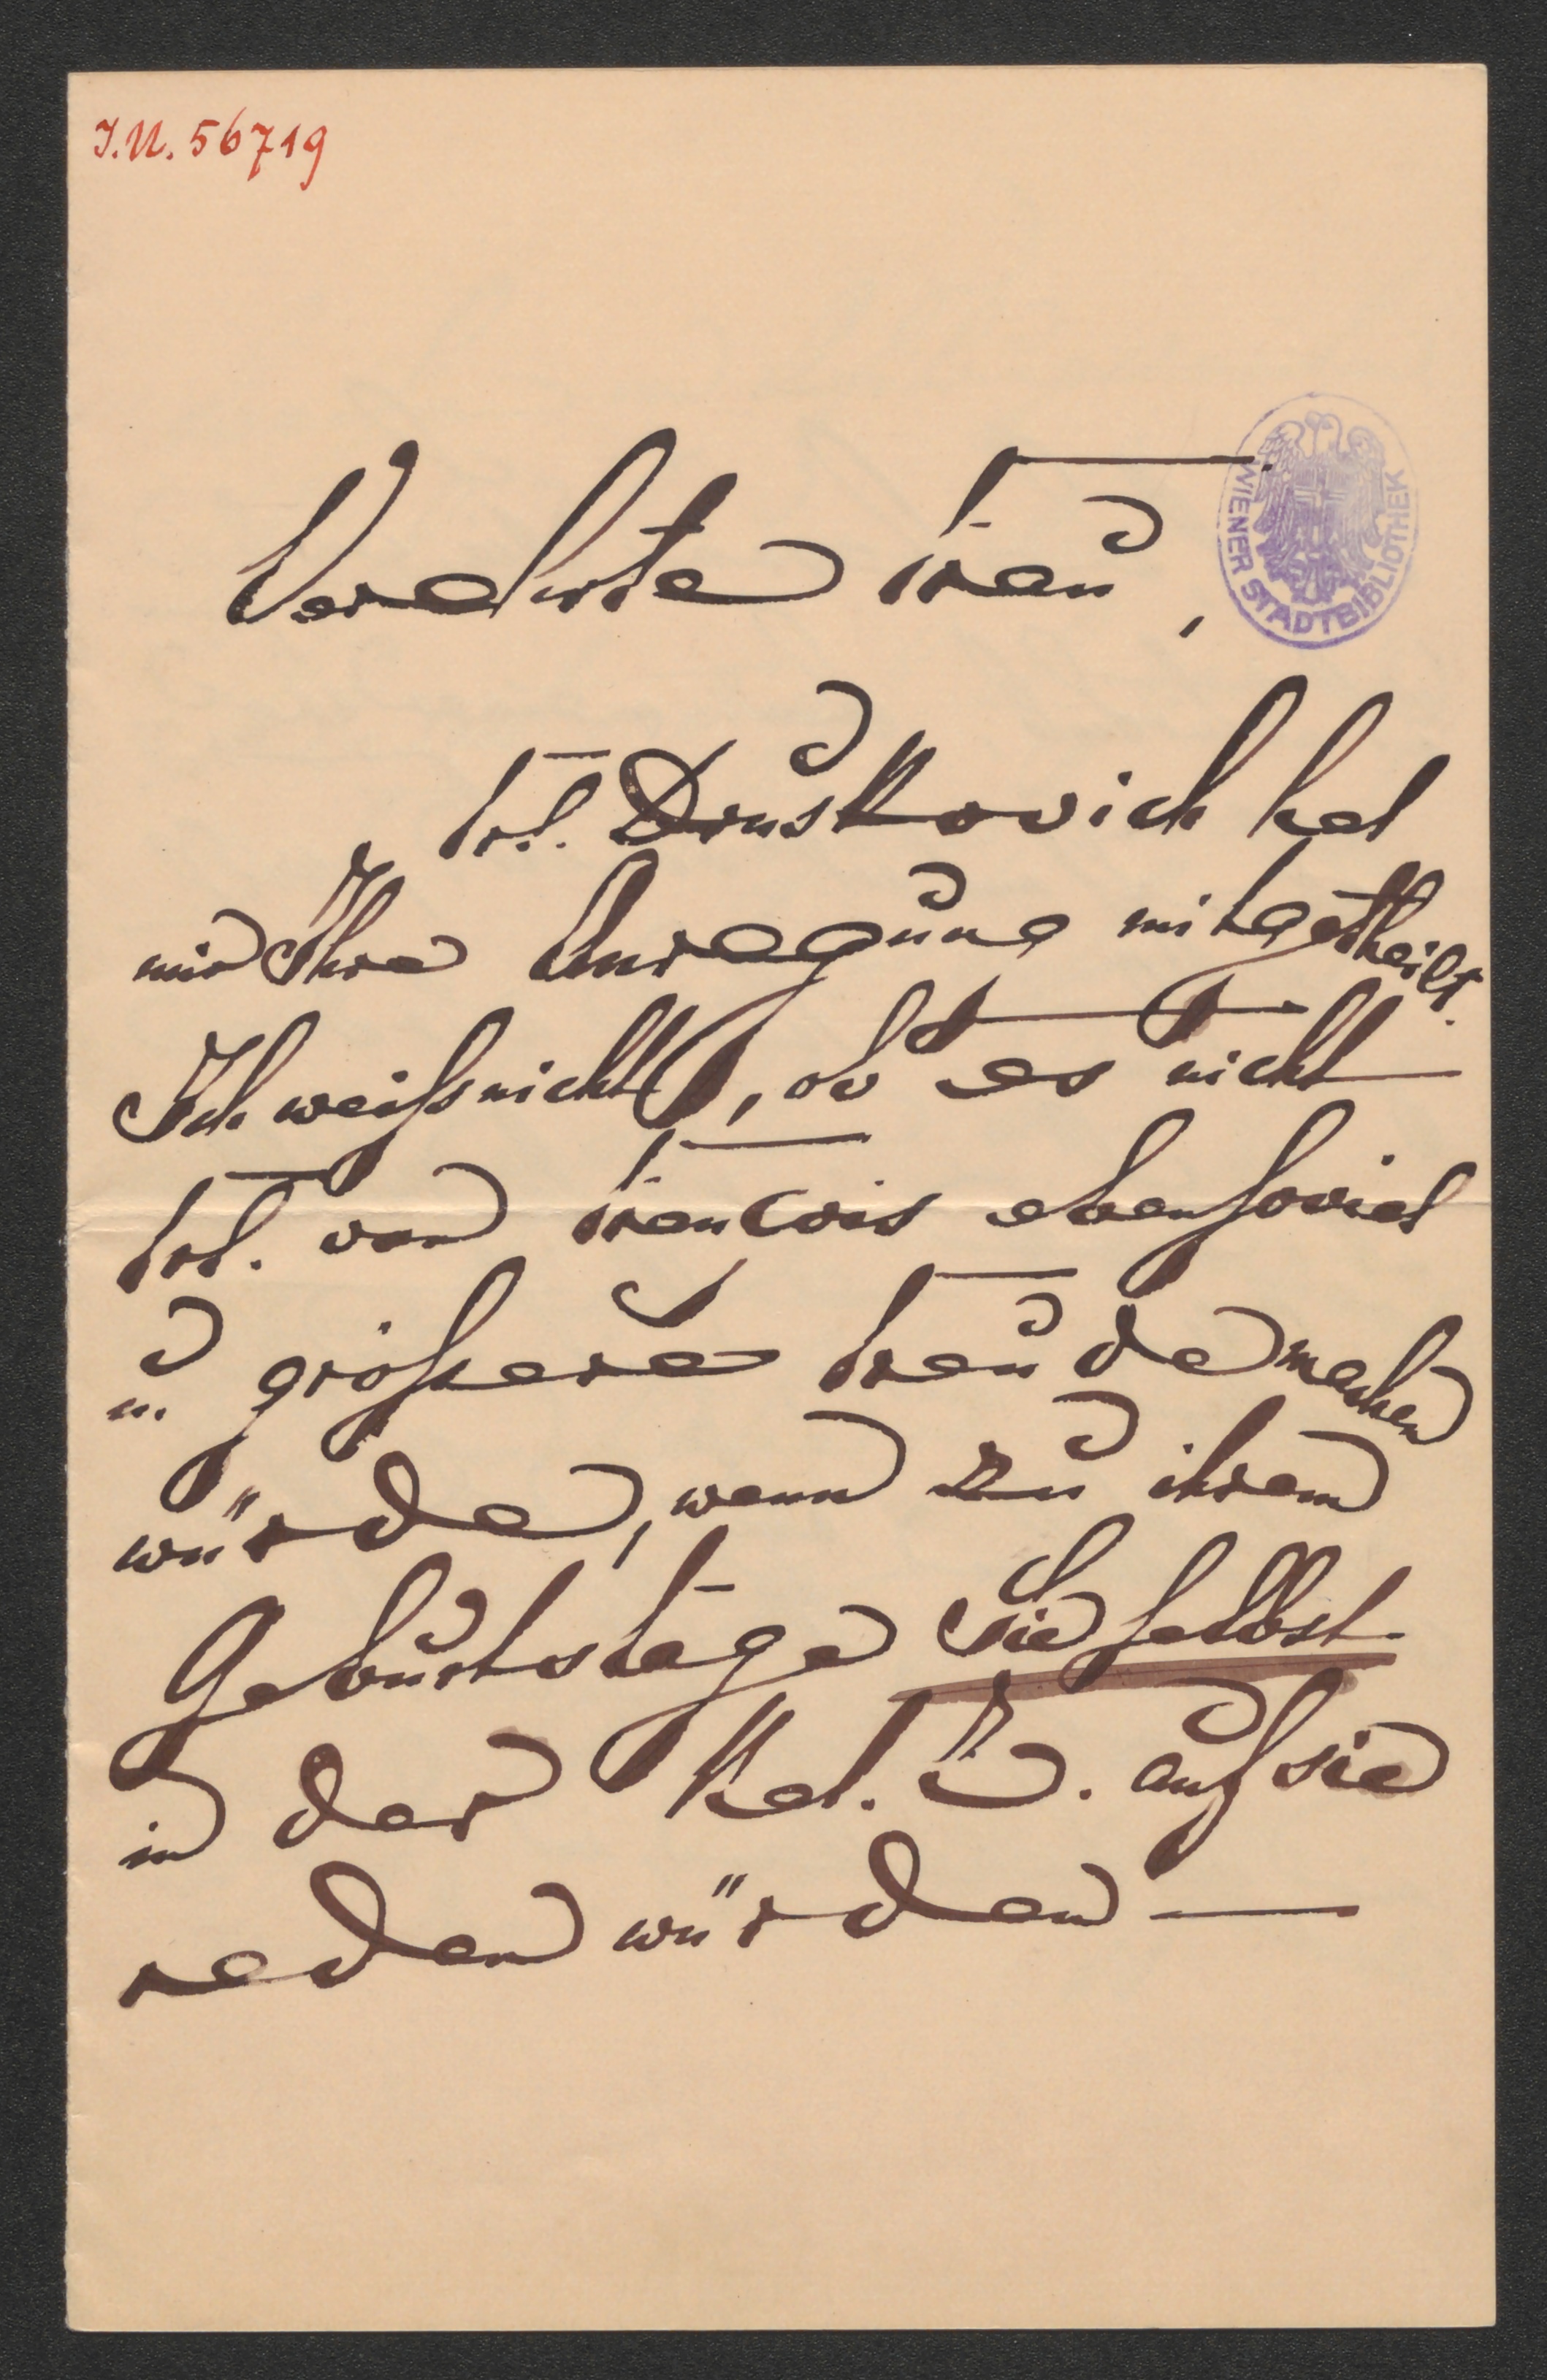 I.N. 56719
Verehrte Frau,
WIENER STADTBIBLIOTHEK
Frl. Druskovich hat
mir Ihre Anregung mitgetheilt.
Ich weiß nicht, ob es nicht
Frl. von Francois ebensoviel
u. größere Freude machen
würde, wenn zu ihrem
Geburtstage Sie selbst
in der Kol. Z. auf sie
reden würden —